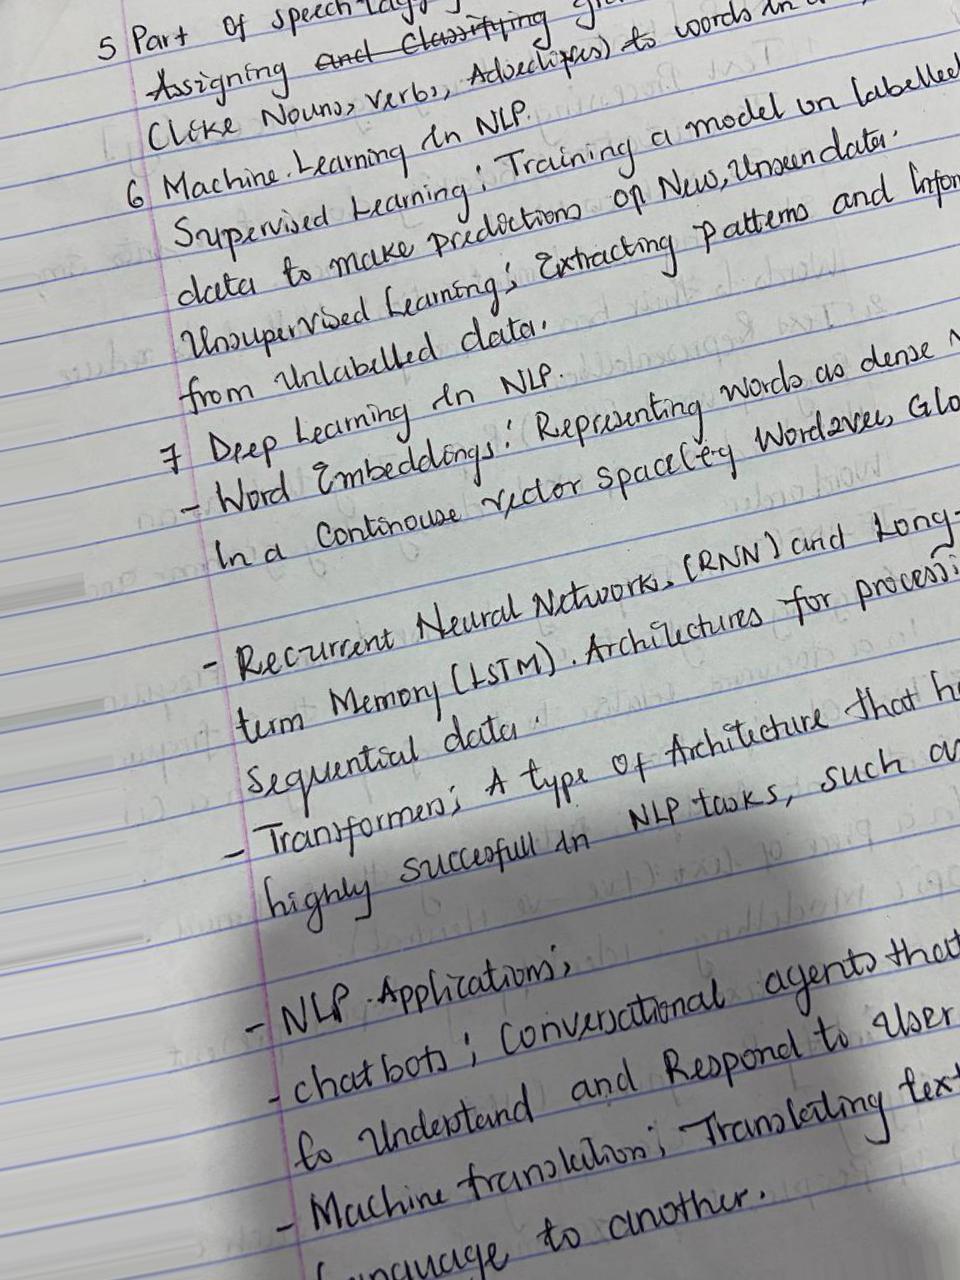 5 Part of speech
Assigning and Classifying
(Like Nouns, verbs, Adjectives) to words in a
6 Machine Learning in NLP.
Supervised Learning; Training a model on labelled
data to make predictions on New, Unseen data.
Unsupervised Learning; Extracting patterns and Infor
from Unlabelled data.
7 Deep Learning in NLP.
- Word Embeddings: Representing words as dense
In a Continouse vector space (eg Word2vec, Glo
- Recurrent Neural Networks, (RNN) and Long-
term Memory (LSTM). Architectures for processi
Sequential data.
- Transformers; A type of Architecture that ha
highly succesfull in NLP tasks, such as
- NLP Applications;
- chatbots; Conversational agents that
to Understand and Respond to User
- Machine translation; Translating text
language to another.